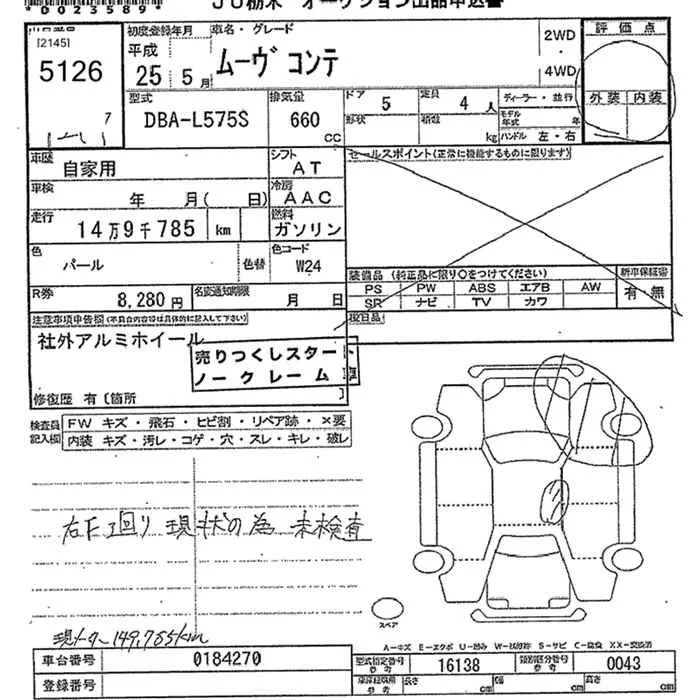 *0023589*
JU栃木 オークション出品申込書
[2145]
5126
7
初度登録年月
平成
25年5月
車名・グレード
ムーヴ コンテ
2WD
・
4WD
評価点
外装 内装
型式
DBA-L575S
排気量
660
CC
ドア 5
定員 4人
形状
積載 kg
ディーラー・並行
モデル年式 年
ハンドル 左・右
車歴
自家用
シフト
AT
セールスポイント(正常に機能するものに限ります)
車検
年 月( 日)
冷房
AAC
走行
14万9千785 km
燃料
ガソリン
色
パール
色替
色コード
W24
装備品 (純正品に限り○をつけてください)
PS PW ABS エアB AW
SR ナビ TV カワ
新車保証書
有・無
R券
8,280円
名変通知期限
月 日
注意事項申告欄(不具合内容等は具体的に記入して下さい)
社外アルミホイール
売りつくしスタート
ノークレーム 車
修復歴 有〔箇所 〕
検査員記入欄
FW キズ・飛石・ヒビ割・リペア跡・×要
内装 キズ・汚レ・コゲ・穴・スレ・キレ・破レ
右下廻り 現状の為 未検査
現メーター149,785km
スペア
A-キズ E-エクボ U-凹み W-波修跡 S-サビ C-腐食 XX-交換済
車台番号 0184270
型式指定番号 参考 16138
類別区分番号 参考 0043
登録番号
長さ cm
幅 cm
高さ cm